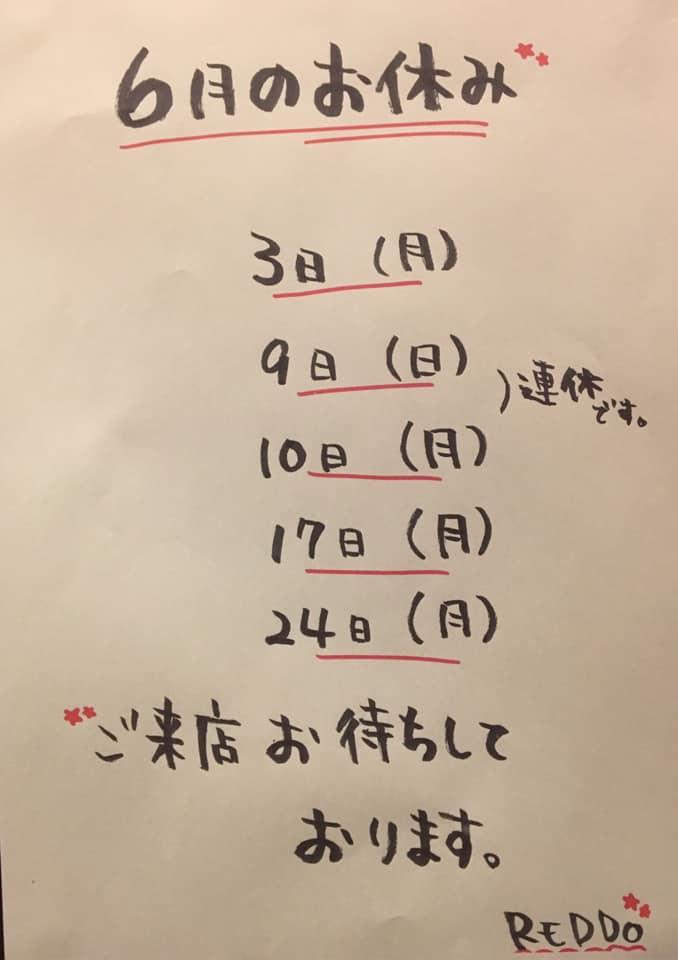 6月のお休み
3日 (月)
9日 (日)
)連休です。
10日 (月)
17日 (月)
24日 (月)
ご来店 お待ちして
おります。
REDDO